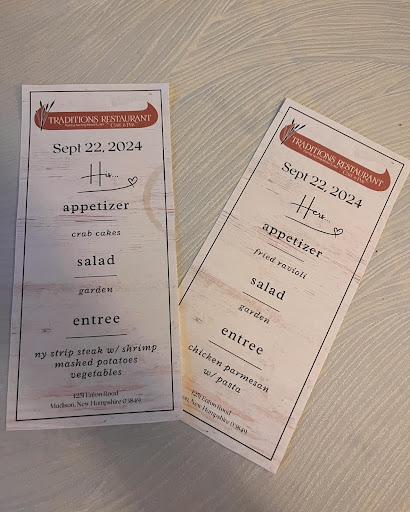 TRADITIONS RESTAURANT
Sept 22, 2024
His...
appetizer
crab cakes
salad
garden
entree
ny strip steak w/ shrimp
mashed potatoes
vegetables
Madison, New Hampshire 03849
TRADITIONS RESTAURANT
Sept 22, 2024
Hers
appetizer
fried ravioli
salad
garden
entree
chicken parmesan
w/ pasta
New Hampshire 03849